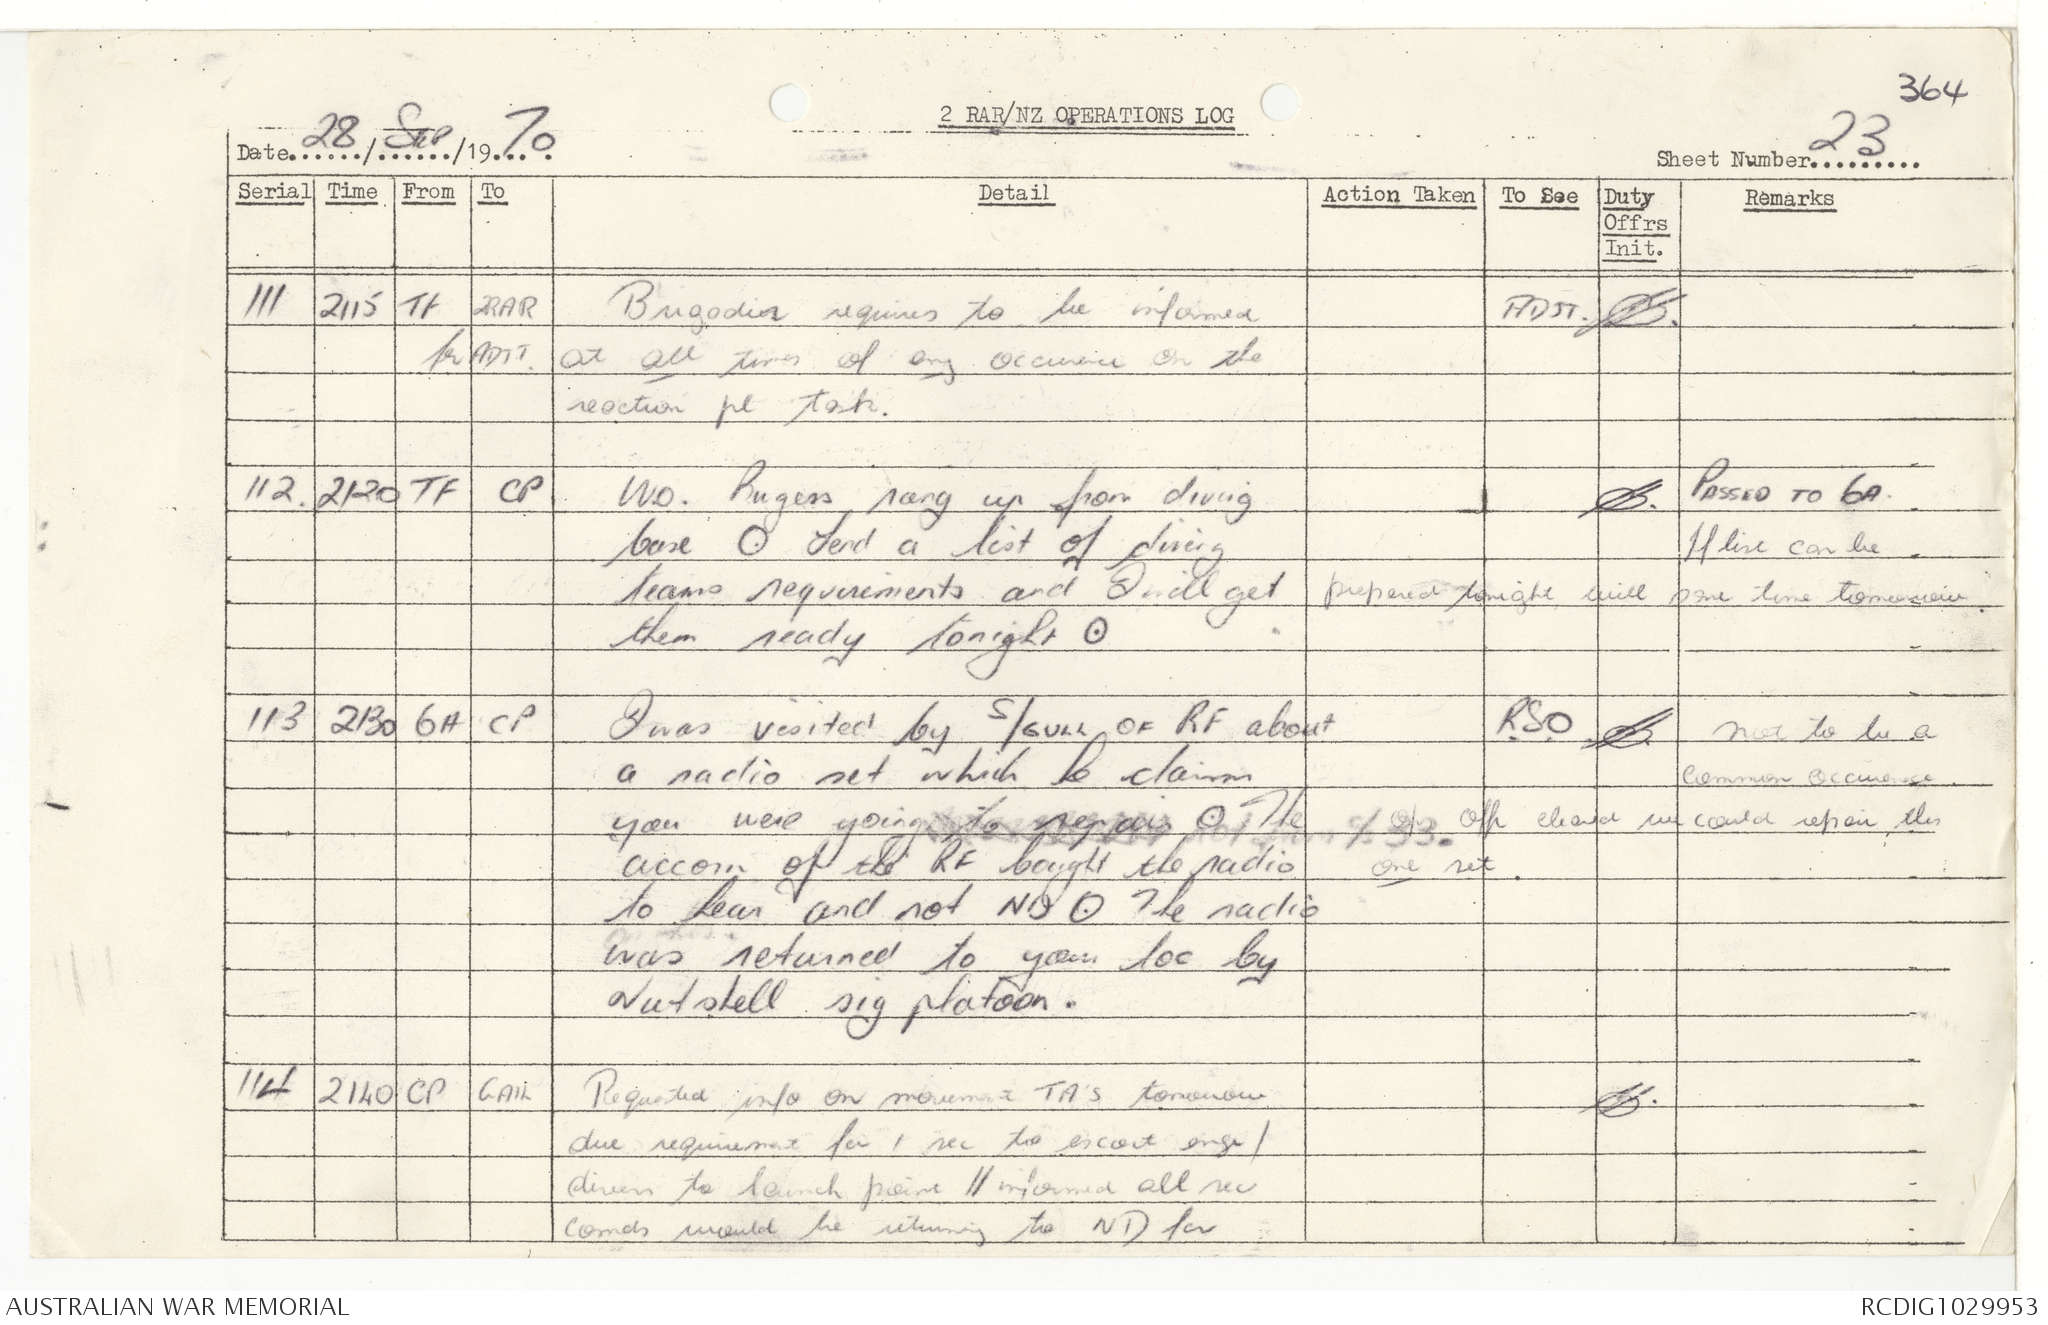 364
2 RAR/NZ OPERATIONS LOG
Date 28/Sep/1970
Sheet Number 23
Serial Time From To Detail Action Taken To See Duty Offrs Init. Remarks
111 2115 TF 2RAR Brigadier requires to be informed ADJT.
for ADJT. at all times of any occurence on the
reaction pl task.
112. 2120 TF CP WO. rang up from diving PASSED TO 6A.
base ⊙ Send a list of diving If list can be
teams requirements and I will get prepared tonight will save time tomorrow.
them ready tonight ⊙
113 2130 6A CP I was visited by S/GULL OF RF about RSO not to be a
a radio set which he claims common occurence
you were going to repair ⊙ The off cleared we could repair this
accom of the RF bought the radio one set.
to hear and not ND ⊙ The radio
was returned to your loc by
Nutshell sig platoon.
114 2140 CP Requested info on movement TA'S tomorrow
due requirement for 1 sec to escort engr/
divers to launch point // informed all sec
comds would be returning to ND for
AUSTRALIAN WAR MEMORIAL
RCDIG1029953